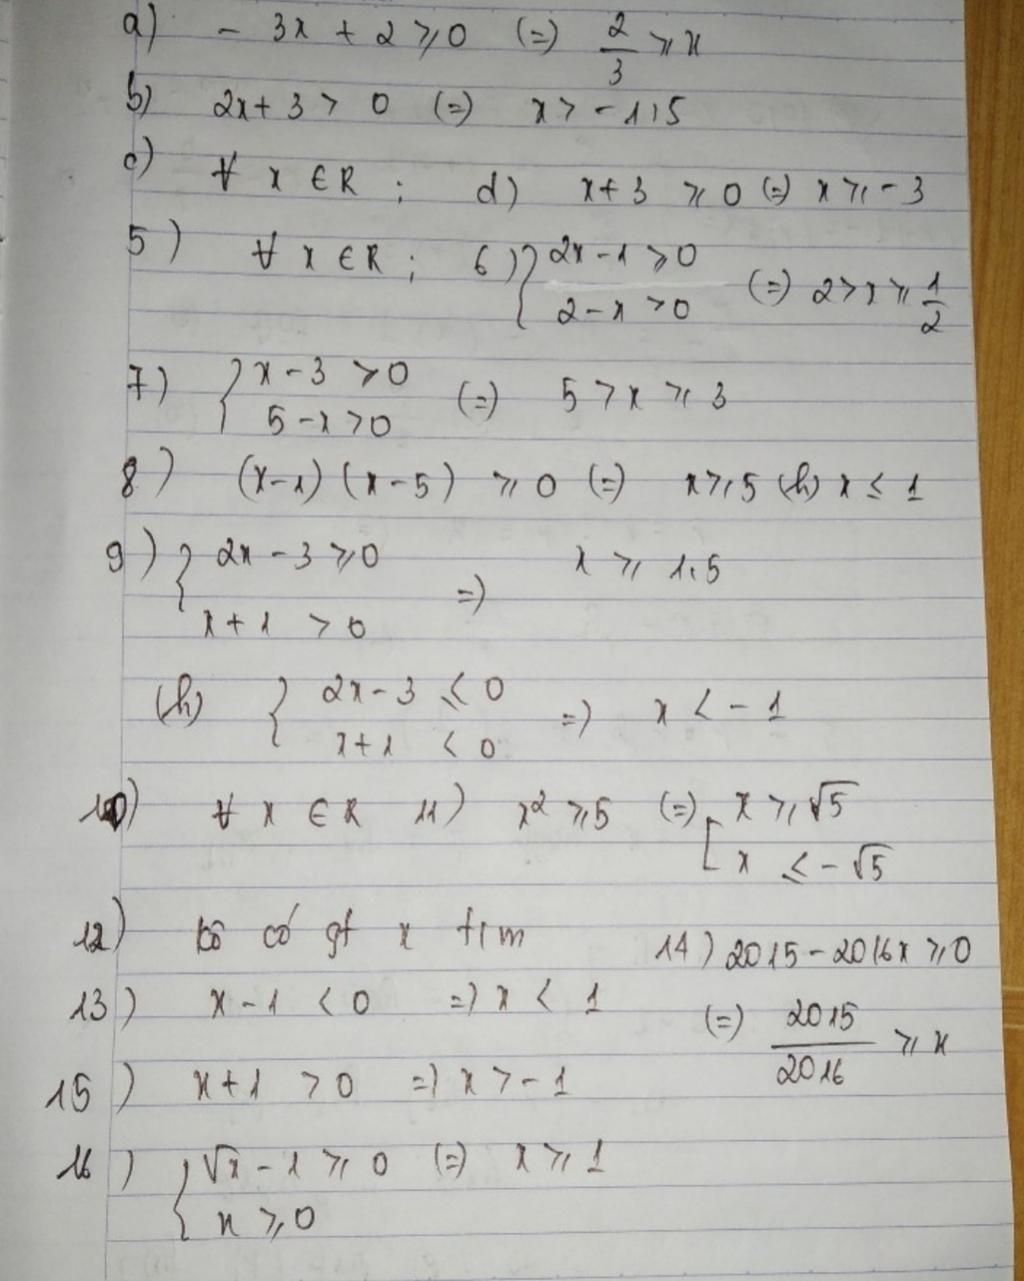 a) - 3x + 2 ⩾ 0 (=) 2/3 ⩾ x
b) 2x + 3 > 0 (=) x > -1,5
c) ∀ x ∈ R ; d) x + 3 ⩾ 0 (=) x ⩾ -3
5) ∀ x ∈ R ; 6) { 2x - 1 ⩾ 0
2 - x > 0 (=) 2 > x ⩾ 1/2
7) { x - 3 ⩾ 0
5 - x > 0 (=) 5 > x ⩾ 3
8) (x-1) (x-5) ⩾ 0 (=) x ⩾ 5 (h) x ≤ 1
9) { 2x - 3 ⩾ 0
x + 1 > 0 =) x ⩾ 1,5
(h) { 2x - 3 ⩽ 0
x + 1 < 0 =) x < -1
10) ∀ x ∈ R 11) x² ⩾ 5 (=) [ x ⩾ √5
x ⩽ -√5
12) kô có gt x tìm
14) 2015 - 2016x ⩾ 0
13) x - 1 < 0 =) x < 1
(=) 2015/2016 ⩾ x
15) x + 1 > 0 =) x > -1
16) { √x - 1 ⩾ 0 (=) x ⩾ 1
x ⩾ 0